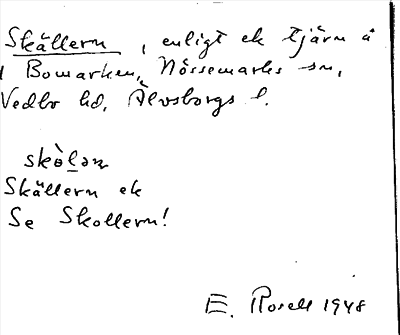 Skällern, enligt ek tjärn å
Bomarken, Nössemarks sn,
Vedbo hd, Älvsborgs l.
skòlan
Skällern ek
Se Skollern!
E. Rosell 1948